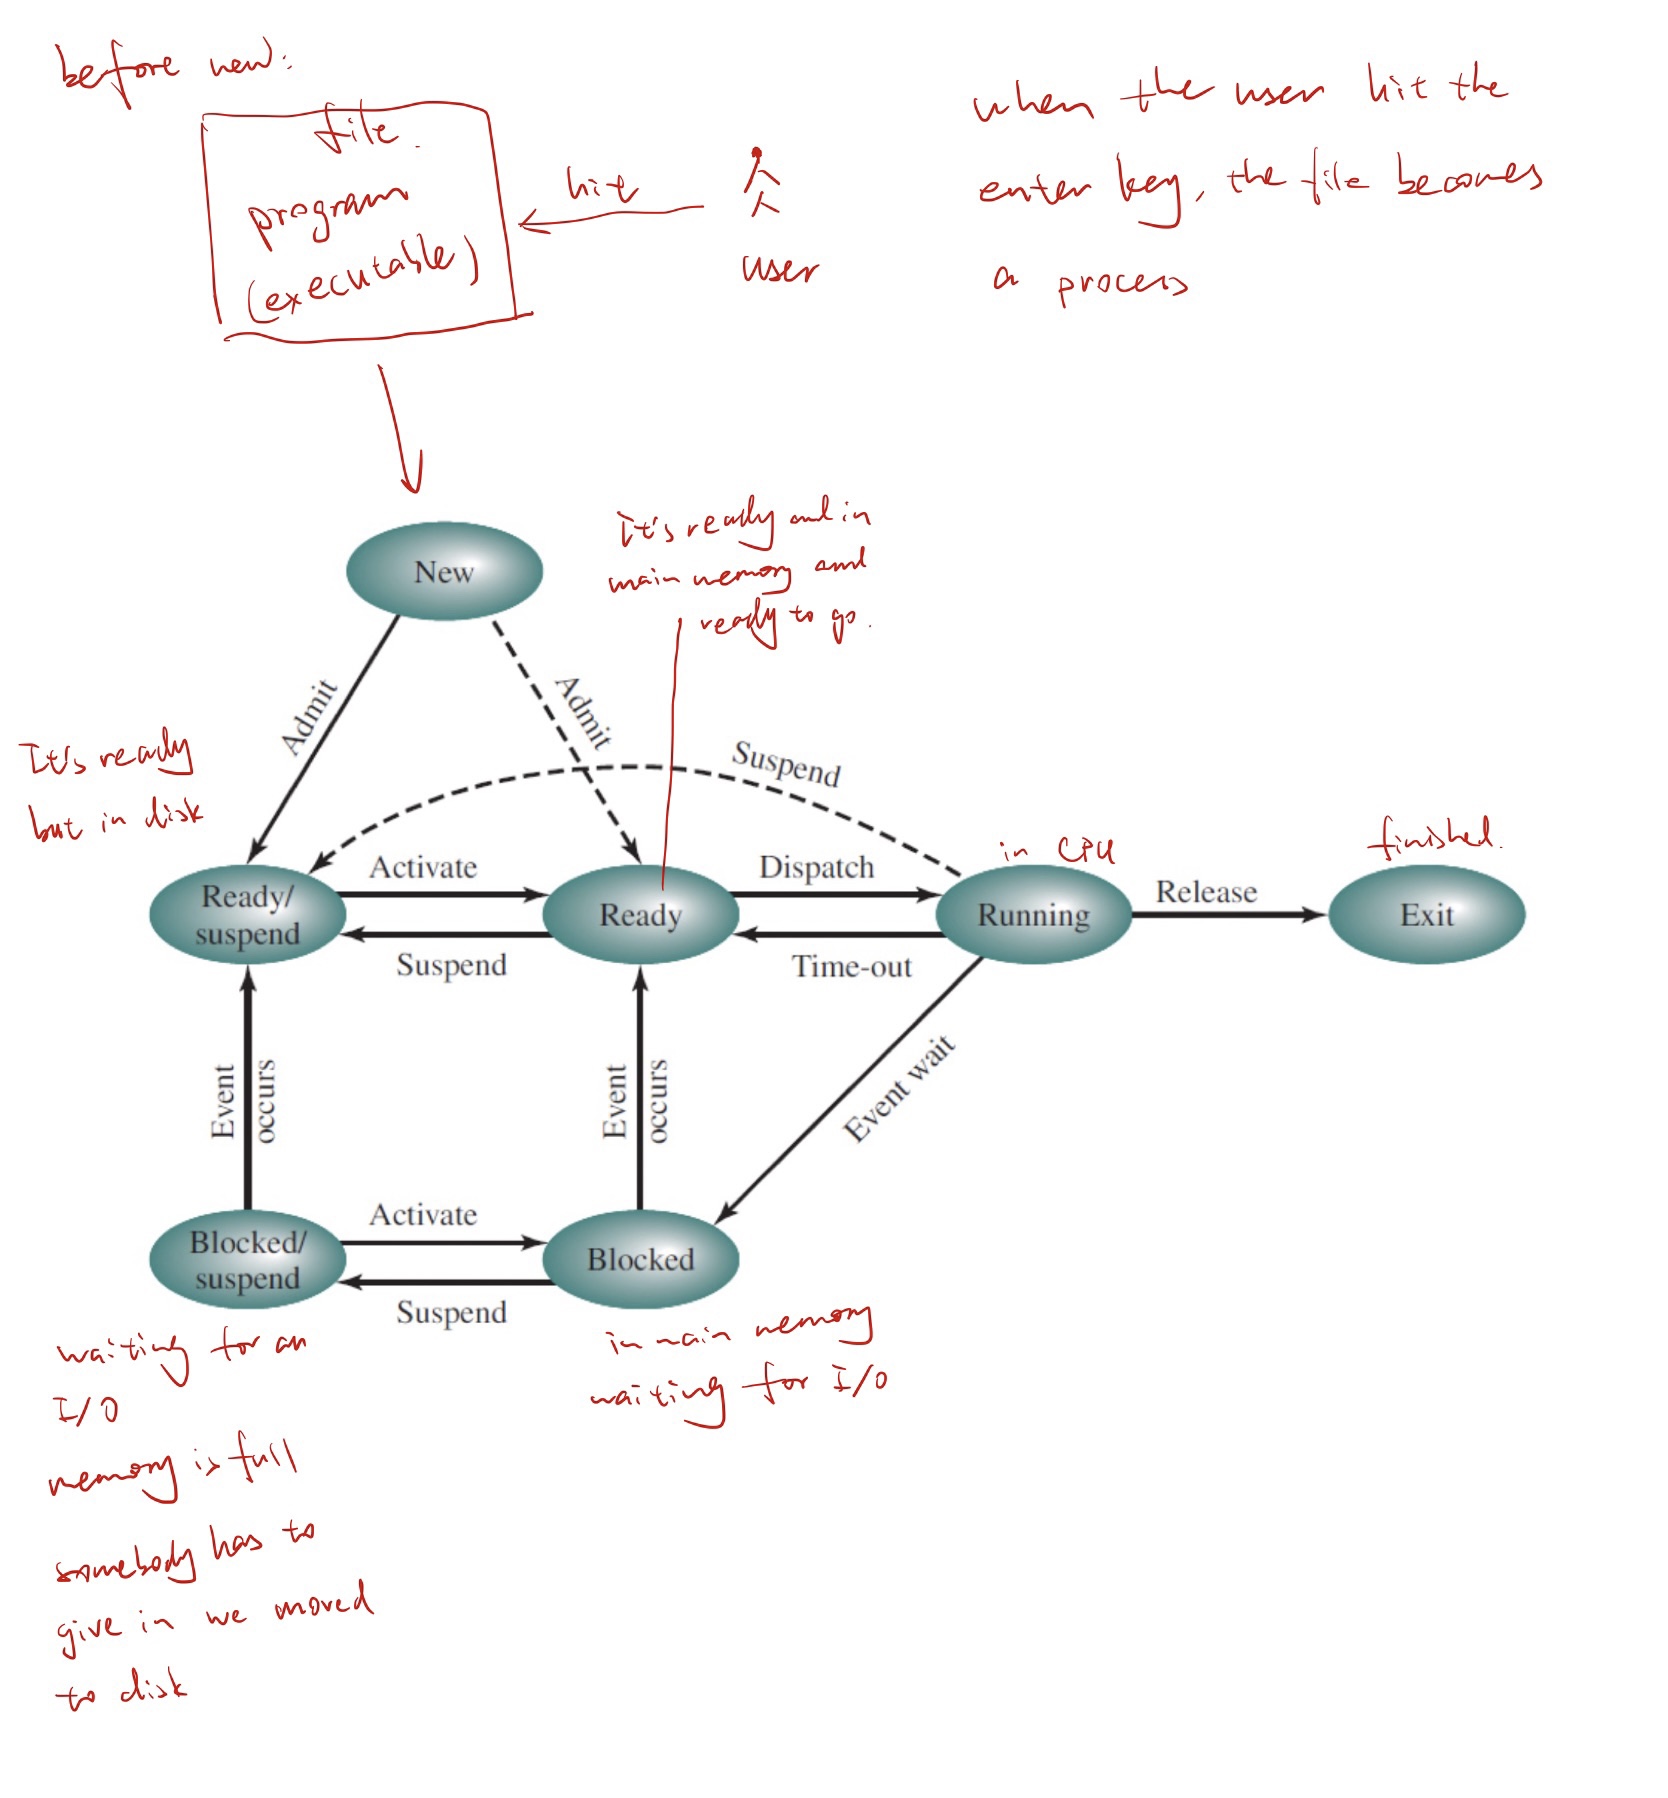 before new:
file.
program
(executable)
hit
user
when the user hit the
enter key, the file becomes
a process
New
It's ready and in
main memory and
ready to go.
Admit
Admit
Suspend
It's ready
but in disk
in CPU
finished.
Ready/
suspend
Activate
Suspend
Ready
Dispatch
Time-out
Running
Release
Exit
Event
occurs
Event
occurs
Event wait
Blocked/
suspend
Activate
Suspend
Blocked
waiting for an
I/O
memory is full
somebody has to
give in we moved
to disk
in main memory
waiting for I/O